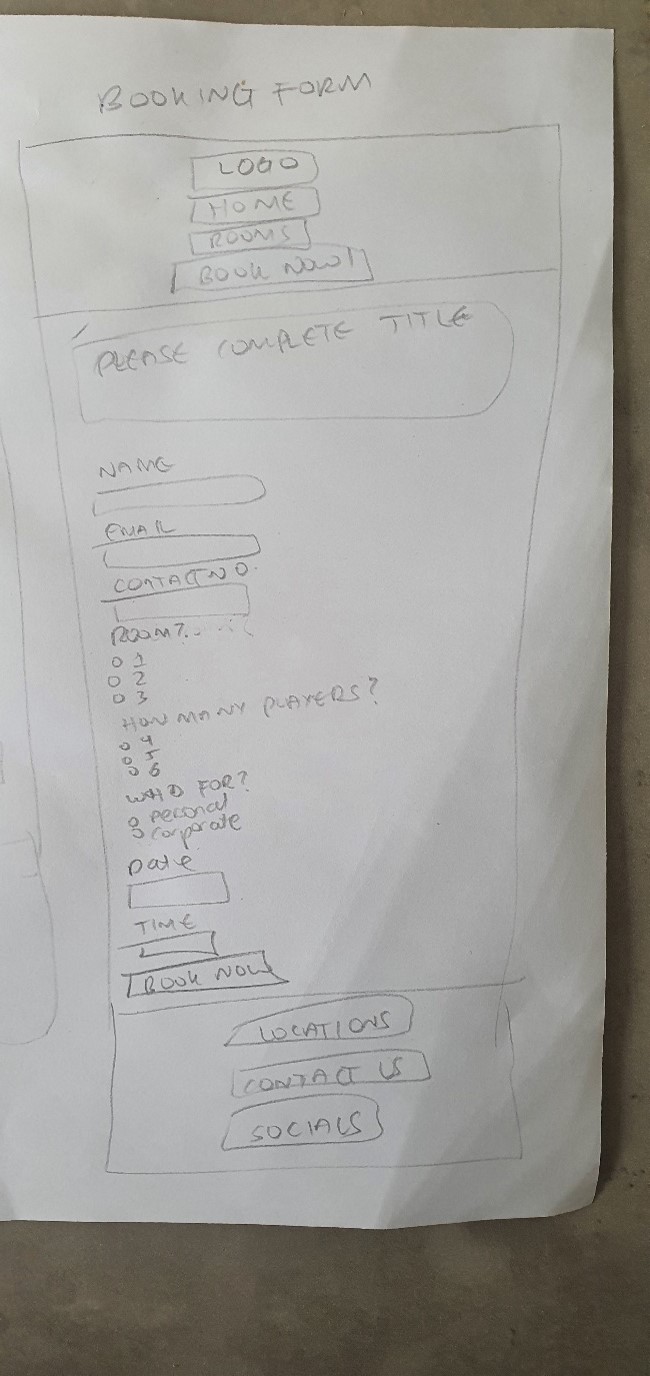 BOOKING FORM
LOGO
HOME
ROOMS
BOOK NOW!
PLEASE COMPLETE TITLE
NAME
EMAIL
CONTACT NO.
ROOM?
1
2
3
HOW MANY PLAYERS?
4
5
6
WHO FOR?
personal
corporate
Date
TIME
BOOK NOW
LOCATIONS
CONTACT US
SOCIALS